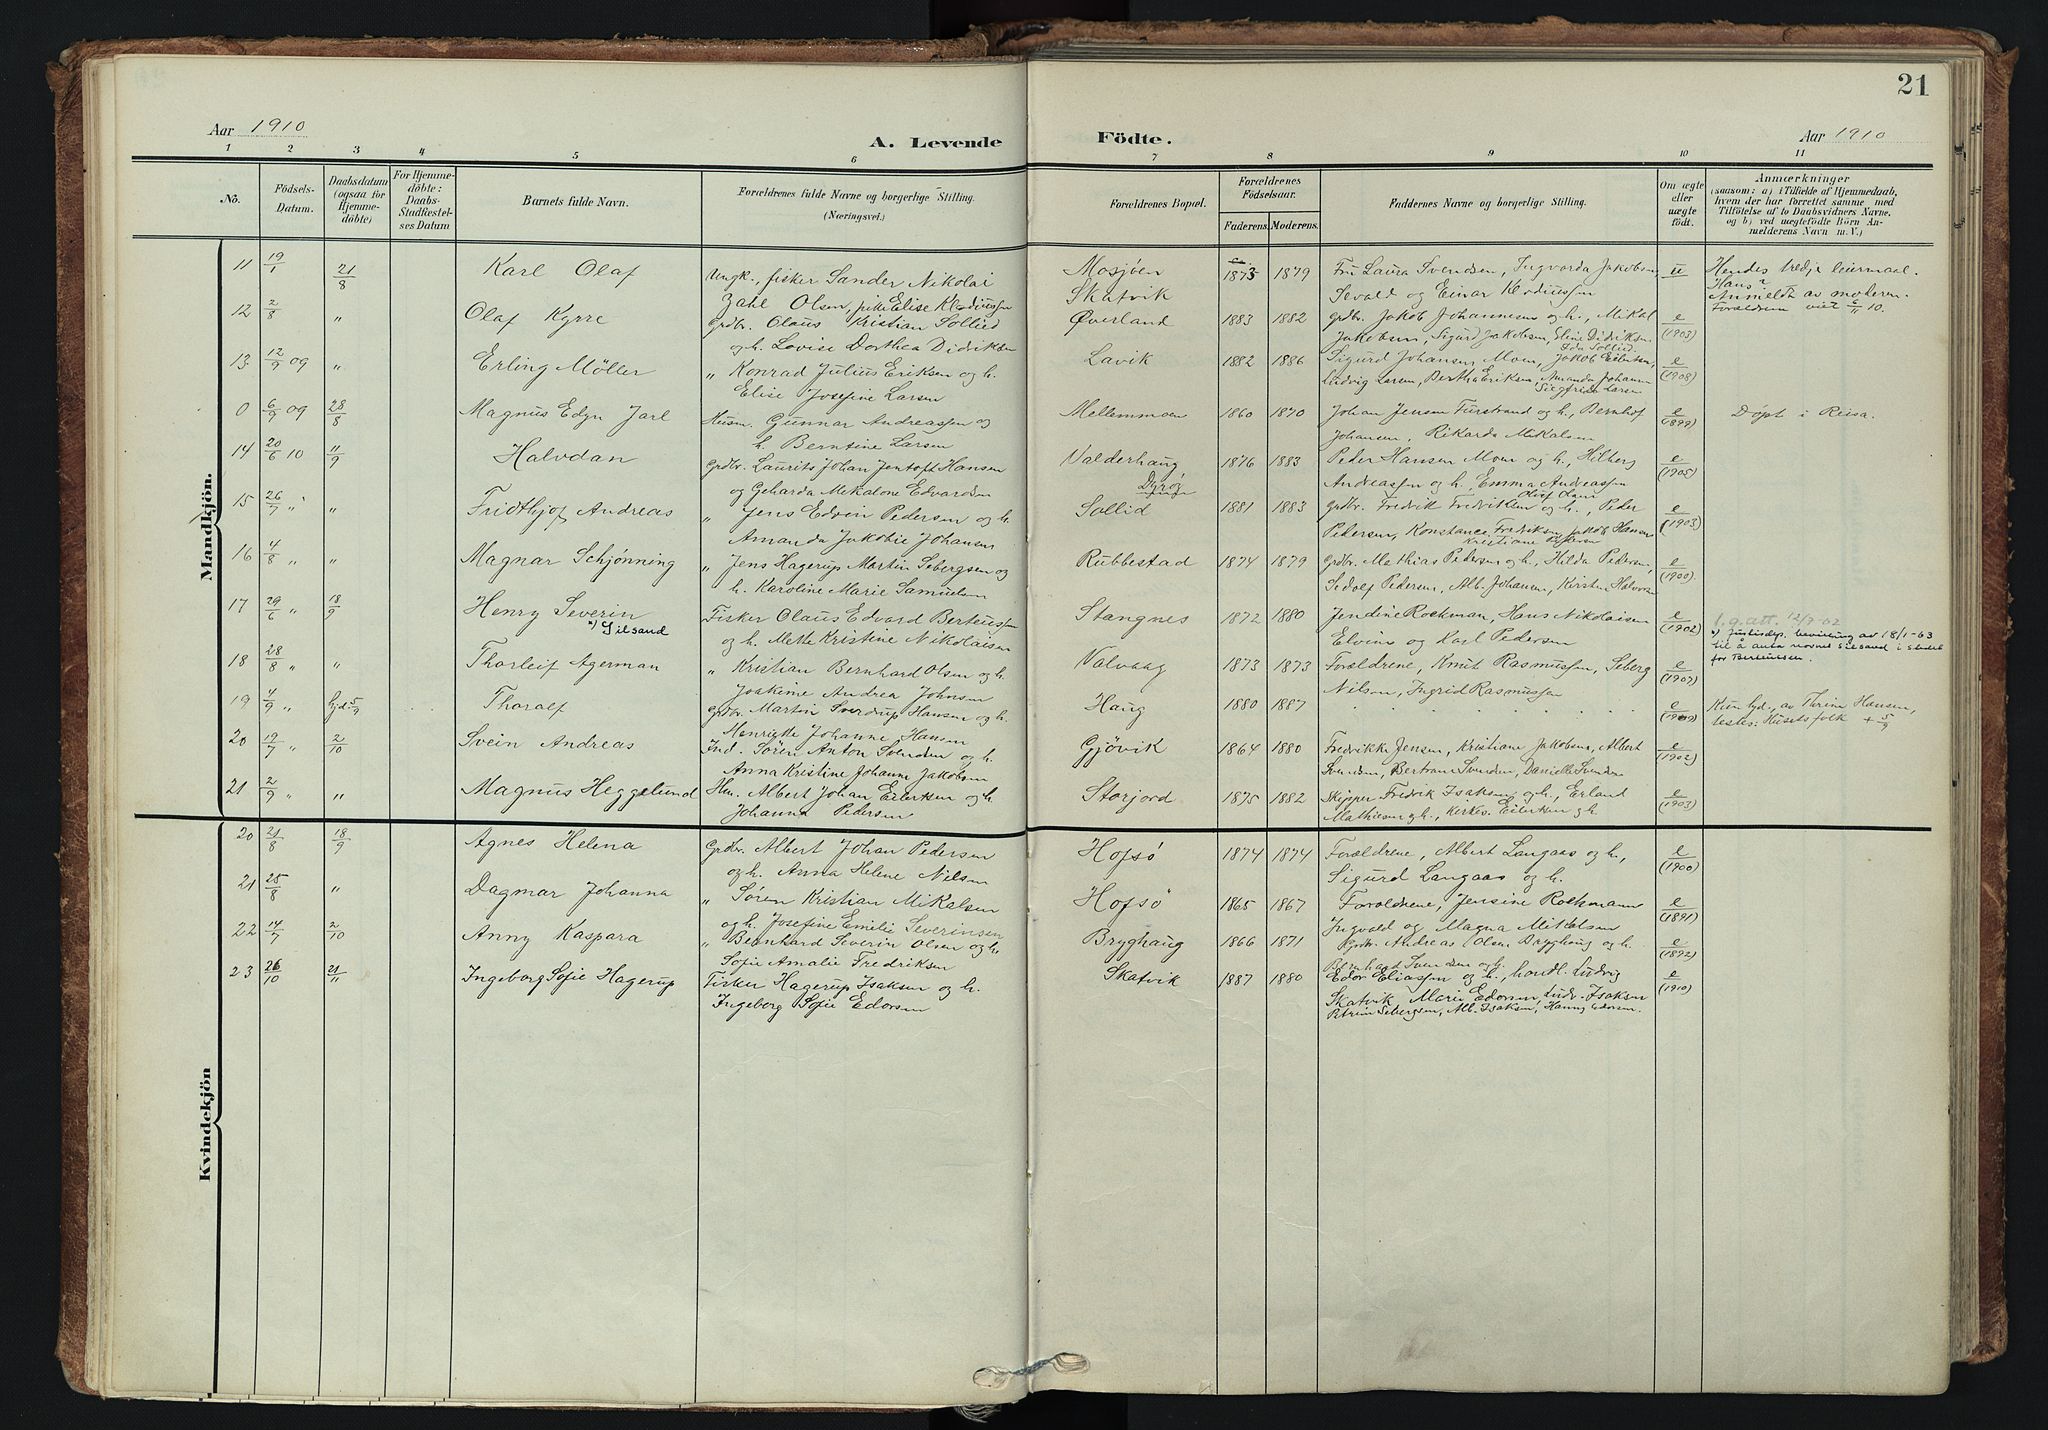 21
Aar 1910 A. Levende Födte. Aar 1910
1 2 3 4 5 6 7 8 9 10 11
No. Födsels-Datum. Daabsdatum (ogsaa for Hjemmedöbte) For Hjemmedöbte: Daabs-Stadfestelses Datum Barnets fulde Navn. Forældrenes fulde Navne og borgerlige Stilling. (Næringsvei.) Forældrenes Bopæl. Forældrenes Födselsaar. Faderens. Moderens. Faddernes Navne og borgerlige Stilling. Om ægte eller uægte födt. Anmærkninger (saasom: a) i Tilfælde af Hjemmedaab, hvem der har forrettet samme med Tilföielse af to Daabsvidners Navne, og b) ved uægtefödte Börn Anmelderens Navn m. V.)
Mandkjön.
11 19/1 21/8 Karl Olaf Ungk., fisker Sander Nikolai Mosjøen 1873 1879 Fru Laura Svendsen, Ingvarda Jakobsen u Hendes tredje leiermaal.
Zahl Olsen, pike Elise Klodiussen Skatvik Sevald og Einar Klodiussen Hans?
Anmeldt av moderen.
Forældrene viet 6/11 10.
12 2/8 " Olaf Kyrre Grdbr. Claus Kristian Sollied Øverland 1883 1882 Grdb. Jakob Johannesen og h., Mikal e
og h. Lovise Dorthea Didriksen Jakobsen, Sigurd Jakobsen, Eline Didriksen (1903)
Ida Sollied
13 12/9 09 " Erling Möller " Konrad Julius Eriksen og h. Lavik 1882 1886 Sigurd Johansen Moen, Jakob Eilertsen, e
Elise Josefine Larsen Ludvig Larsen, Bertha Eriksen, Amanda Johansen (1908)
Siegfrida Larsen
0 6/9 09 28/8 Magnus Edyn Jarl Husm. Gunnar Andreassen og Mellemmoen 1860 1870 Johan Jensen Furstrand og h., Bernhof e Døpt i Reisa.
h. Berntine Larsen Johansen, Rikarda Mikalsen (1899)
14 20/6 10 11/9 Halvdan Grdbr. Laurits Johan Jentoft Hansen Valderhaug 1876 1883 Peder Hansen Moen og h., Hilberg e
og Geharda Mekalone Edvardsen Dyrøy Andreassen og h., Emma Andreassen (1905)
15 26/7 " " Fridthjof Andreas " Jens Edvin Pedersen og h. Sollid 1881 1883 Grdbr. Fredrik Fredriksen og h., Peder e
Amanda Jakobie Johansen Pedersen, Konstance Fredriksen, Jakob Hansen (1903)
Kristiane Pedersen
16 4/8 " " Magnar Schjønning " Jens Hagerup Martin Sebergsen og Rubbestad 1874 1879 Grdbr. Mathias Pedersen og h., Hilda Pedersen, e
h. Karoline Marie Samuelsen Sedolf Pedersen, Alb. Johansen, Kirsten Halvorsen (1900)
17 29/6 " 18/9 Henry Severin Fisker Claus Edvard Berteussen Stangnes 1872 1880 Jendine Rochman, Hans Nikolaisen e f.g.att. 12/7-02
x) Silsand og h. Mette Kristine Nikolaisen Elvine og Karl Pedersen (1902) x) Justisdep. bevilling av 18/1-63
til å anta navnet Silsand i stedet
for Berteussen.
18 28/8 " " Thorleif Agerman " Kristian Bernhard Olsen og h. Valvaag 1873 1873 Forældrene, Knut Rasmussen, Seberg e
Joakime Andrea Johnsen Nilsen, Ingrid Rasmussen (1907)
19 4/9 " hjd. 5/9 Thoralf Grdbr. Martin Sverdrup Hansen og h. Haug 1880 1887 e Kun hjd., av Thrine Hansen,
Henrigte Johanne Hansen (1909) testes: Husets folk + 5/9
20 19/7 " 2/10 Svein Andreas Ind. Søren Anton Svendsen og h. Gjøvik 1864 1880 Fredrikke Jensen, Kristiane Jakobsen, Albert e
Anna Kristine Johanne Jakobsen Svendsen, Bertram Svendsen, Danielle Svendsen (1902)
21 2/9 " " Magnus Heggelund Hm. Albert Johan Eilertsen og h. Storjord 1875 1882 Skipper Fredrik Isaksen og h., Erland e
Johanna Pedersen Mathiesen og h., Kirkes. Eilertsen og h. (1903)
Kvindekjön
20 21/8 18/9 Agnes Helena Grdbr. Albert Johan Pedersen Hofsø 1874 1874 Forældrene, Albert Langaas og h., e
og h. Anna Helene Nilsen Sigurd Langaas og h. (1900)
21 25/8 " Dagmar Johanna " Søren Kristian Mikalsen Hofsø 1865 1867 Forældrene, Jensine Rochmann e
og h. Josefine Emilie Severinsen Ingvald og Magna Mikalsen (1891)
22 14/7 2/10 Anny Kaspara " Bernhard Severin Olsen og h. Bryghaug 1866 1871 Grdbr. Andreas Olsen Bryghaug og h. e
Sofie Amalie Fredriksen Bernhard Svendsen og h. (1892)
23 26/10 21/11 Ingeborg Sofie Hagerup Fisker Hagerup Isaksen og h. Skatvik 1887 1880 Edor Eliassen og h., handl. Ludvig e
Ingeborg Sofie Edorsen Skatvik, Marie Edorsen, Ludv. Isaksen (1910)
Petrine Sebergsen, Alb. Isaksen, Hanna Edorsen.